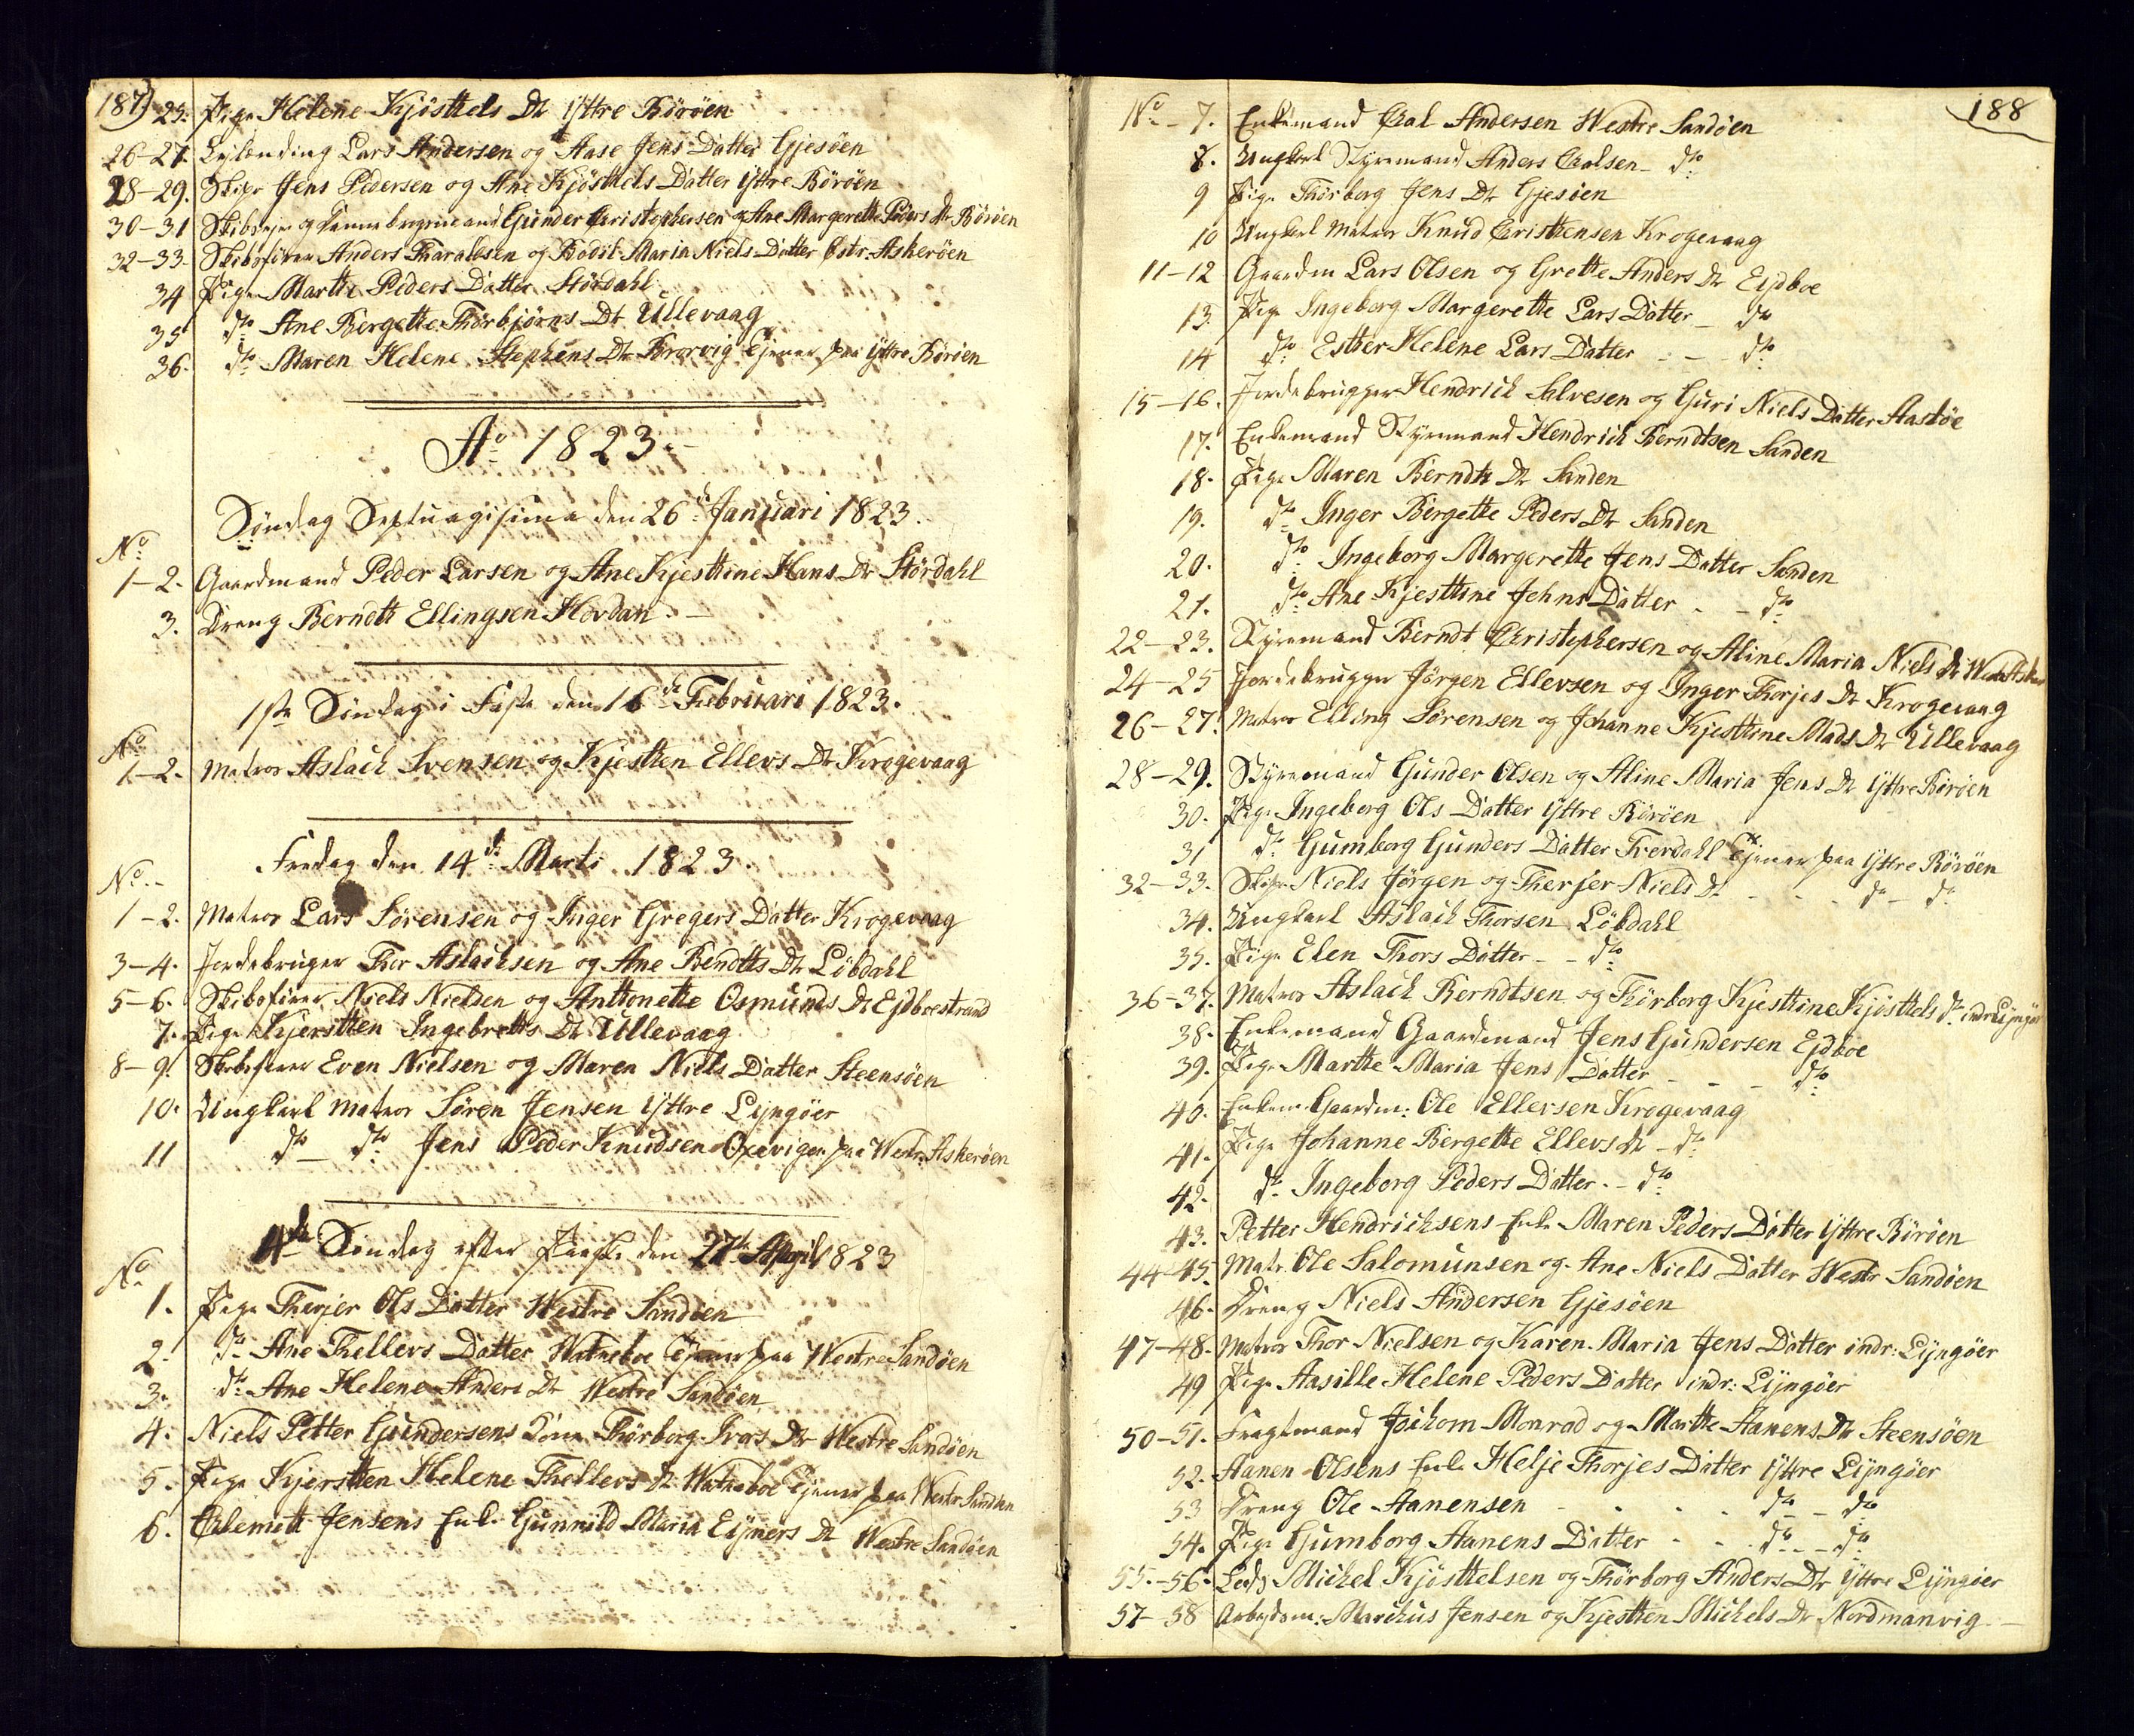 187)
25. Pige Helene Kjösttels Dr Yttre Böröen
26-27. Leylænding Lars Andersen og Aase Jens Datter Gjesöen
28-29. Skipr Jens Pedersen og Ane Kjösttels Datter Yttre Böröen
30-31 Skibseyer og Dannebrogsmand Gunder Christophersen og Ane Margerette Peders Dr Böröen
32-33. Skibsförer Anders Tharalsen og Bodil Maria Niels Datter Östr: Askeröen
34 Pige Marthe Peders Datter Stördahl
35 do Ane Bergette Thörbjörns Dr Ullevaag
36. do Maren Helene Stephens Dr tjener paa Yttre Böröen
Ao 1823.
Söndag Septuagisima den 26de Januari 1823.
No
1-2. Gaardmand Peder Larsen og Ane Kjesttine Hans Dr Stördahl
3. Dreng Berndt Ellingsen Hovdan.
1ste Söndag i Faste den 16de Februari 1823.
No
1-2. Matros Aslach Svensen og Kjestten Ellevs Dr Krogevaag
Fredag den 14de Marti 1823.
No.
1-2. Matros Lars Sørensen og Inger Gregers Datter Krogevaag
3-4. Jordebruger Thor Aslachsen og Ane Bendtts Dr Löbdahl
5-6. Skibsförer Niels Nielsen og Anttonette Osmunds Dr Ejdboestrand
7. Pige Kjerstten Ingebretts Dr Ullevaag
8-9. Skibsförer Even Nielsen og Maren Niels Datter Steensöen
10. Ungkarl Matros Sören Jensen Yttre Lyngöer
11 do do Jens Peder Knudsen Oxevigen paa Westr: Askeröen
4de Söndag efter Paaske den 27de April 1823
No
1. Pige Therjer Ols Datter Westre Sandöen
2. do Ane Thellevs Datter Watneboe tjener paa Westre Sandöen
3. do Ane Helene Anders Dr Westre Sandöen
4. Niels Petter Gundersens Kone Thörborg Ivers Dr Westre Sandöen
5. Pige Kjerstten Helene Thellevs Dr Watneboe tjener paa Westr Sandöen
6. Clemett Jensens Enk. Gunnild Maria Eijners Dr Westre Sandöen
188
No - 7. Enkemand Oval Andersen Westre Sandöen
8. Ungkarl Styrmand Anders Ovalsen do
9 Pige Thörborg Jens Dr Gjesöen
10 Ungkarl Matros Knud Cristtensen Krogevaag
11-12 Gaardm Lars Olsen og Grette Anders Dr Eijdboe
13. Pige Ingeborg Margerette Lars Datter do
14 do Esther Helene Lars Datter do
15-16. Jordebrugger Hendrich Salvesen og Guri Niels Datter Aasböe
17. Enkemand Styrmand Hendrich Berndtsen Sanden
18. Pige Maren Berndtz Dr Sanden
19. do Inger Bergette Peders Dr Sanden
20. do Ingeborg Margerette Jens Datter Sanden
21. do Ane Kjesttine Johns Datter do
22-23. Styrmand Berndt Christophersen og Aline Maria Niels Dr
24-25 Jordebruger Jörgen Ellevsen og Inger Thorjes Dr Krogevaag
26-27. Matros Elling Sørensen og Johanne Kjesttine Mads Dr Ullevaag
28-29. Styrmand Gunder Olsen og Aline Maria Jens Dr Yttre Böröen
30. Pige Ingeborg Ols Datter Yttre Böröen
31 do Gumborg Gunders Datter tjener paa Yttre Böröen
32-33. Skipr Niels Jörgen og Therjer Niels Dr do do
34. Ungkarl Aslach Thorsen Löbdahl
35. Pige Elen Thors Datter do
36-37. Matros Aslach Berndtsen og Thörborg Kjesttine Kjösttels Dr indr Lyngör
38. Enkemand Gaardmand Jens Gundersen Ejdboe
39. Pige Marthe Maria Jens Datter do
40. Enkem. Gaardm: Ole Ellevsen Krogevaag
41. Pige Johanne Bergette Ellevs Dr do
42. do Ingeborg Peders Datter do
43. Petter Hendrichsens Enk. Maren Peders Datter Yttre Böröen
44-45. Matr. Ole Salomunsen og Ane Niels Datter Westr Sandöen
46. Dreng Niels Andersen Gjesöen
47-48. Matros Thor Nielsen og Karen Maria Jens Datter indr: Lijngöer
49 Pige Aasille Helene Peders Datter indr: Lijngöer
50-51. Fragtmand Jochom Monrad og Marthe Aanens Dr Steensöen
52. Aanen Olsens Enk. Helje Thorjes Datter Yttre Lijngöer
53 Dreng Ole Aanensen do do
54. Pige Gumborg Aanens Datter do do
55.-56. Lods Michel Kjösttelsen og Thörborg Anders Dtr Yttre Lijngöer
57-58 Arbejdsm: Marchus Jensen og Kjestten Michels Dr Nordmanvig